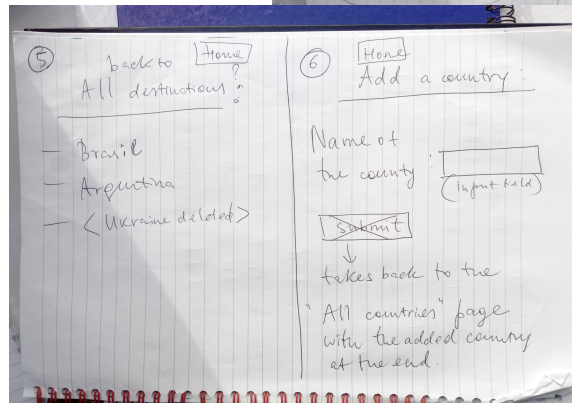 5
back to Home ?
All destinations :
— Brasil
— Argentina
— <Ukraine deleted>
6
Home
Add a country :
Name of
the county : (Input field)
Submit
↓
takes back to the
"All countries" page
with the added country
at the end.